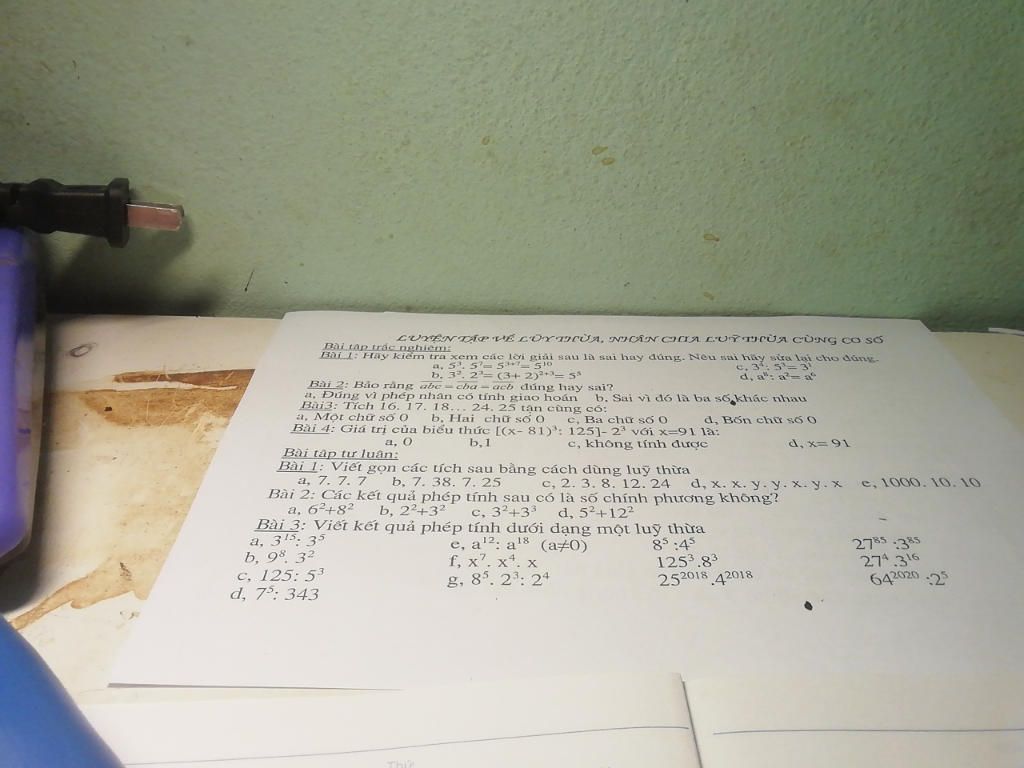 LUYỆN TẬP VỀ LŨY THỪA, NHÂN CHIA LUỸ THỪA CÙNG CƠ SỐ
Bài tập trắc nghiệm:
Bài 1: Hãy kiểm tra xem các lời giải sau là sai hay đúng. Nếu sai hãy sửa lại cho đúng.
a, 5³. 5⁷= 5³⁺⁷= 5¹⁰ c, 3⁴: 5³= 3¹
b, 3². 2³= (3+ 2)²⁺³= 5⁵ d, a⁸: a²= a⁶
Bài 2: Bảo rằng abc = cba = acb đúng hay sai?
a, Đúng vì phép nhân có tính giao hoán b, Sai vì đó là ba số khác nhau
Bài3: Tích 16. 17. 18… 24. 25 tận cùng có:
a, Một chữ số 0 b, Hai chữ số 0 c, Ba chữ số 0 d, Bốn chữ số 0
Bài 4: Giá trị của biểu thức [(x- 81)³: 125]- 2³ với x=91 là:
a, 0 b,1 c, không tính được d, x= 91
Bài tập tự luận:
Bài 1: Viết gọn các tích sau bằng cách dùng luỹ thừa
a, 7. 7. 7 b, 7. 38. 7. 25 c, 2. 3. 8. 12. 24 d, x. x. y. y. x. y. x e, 1000. 10. 10
Bài 2: Các kết quả phép tính sau có là số chính phương không?
a, 6²+8² b, 2²+3² c, 3²+3³ d, 5²+12²
Bài 3: Viết kết quả phép tính dưới dạng một luỹ thừa
a, 3¹⁵: 3⁵ e, a¹²: a¹⁸ (a≠0) 8⁵ :4⁵ 27⁸⁵ :3⁸⁵
b, 9⁸. 3² f, x⁷. x⁴. x 125³ .8³ 27⁴ .3¹⁶
c, 125: 5³ g, 8⁵. 2³: 2⁴ 25²⁰¹⁸ .4²⁰¹⁸ 64²⁰²⁰ :2⁵
d, 7⁵: 343
Thứ